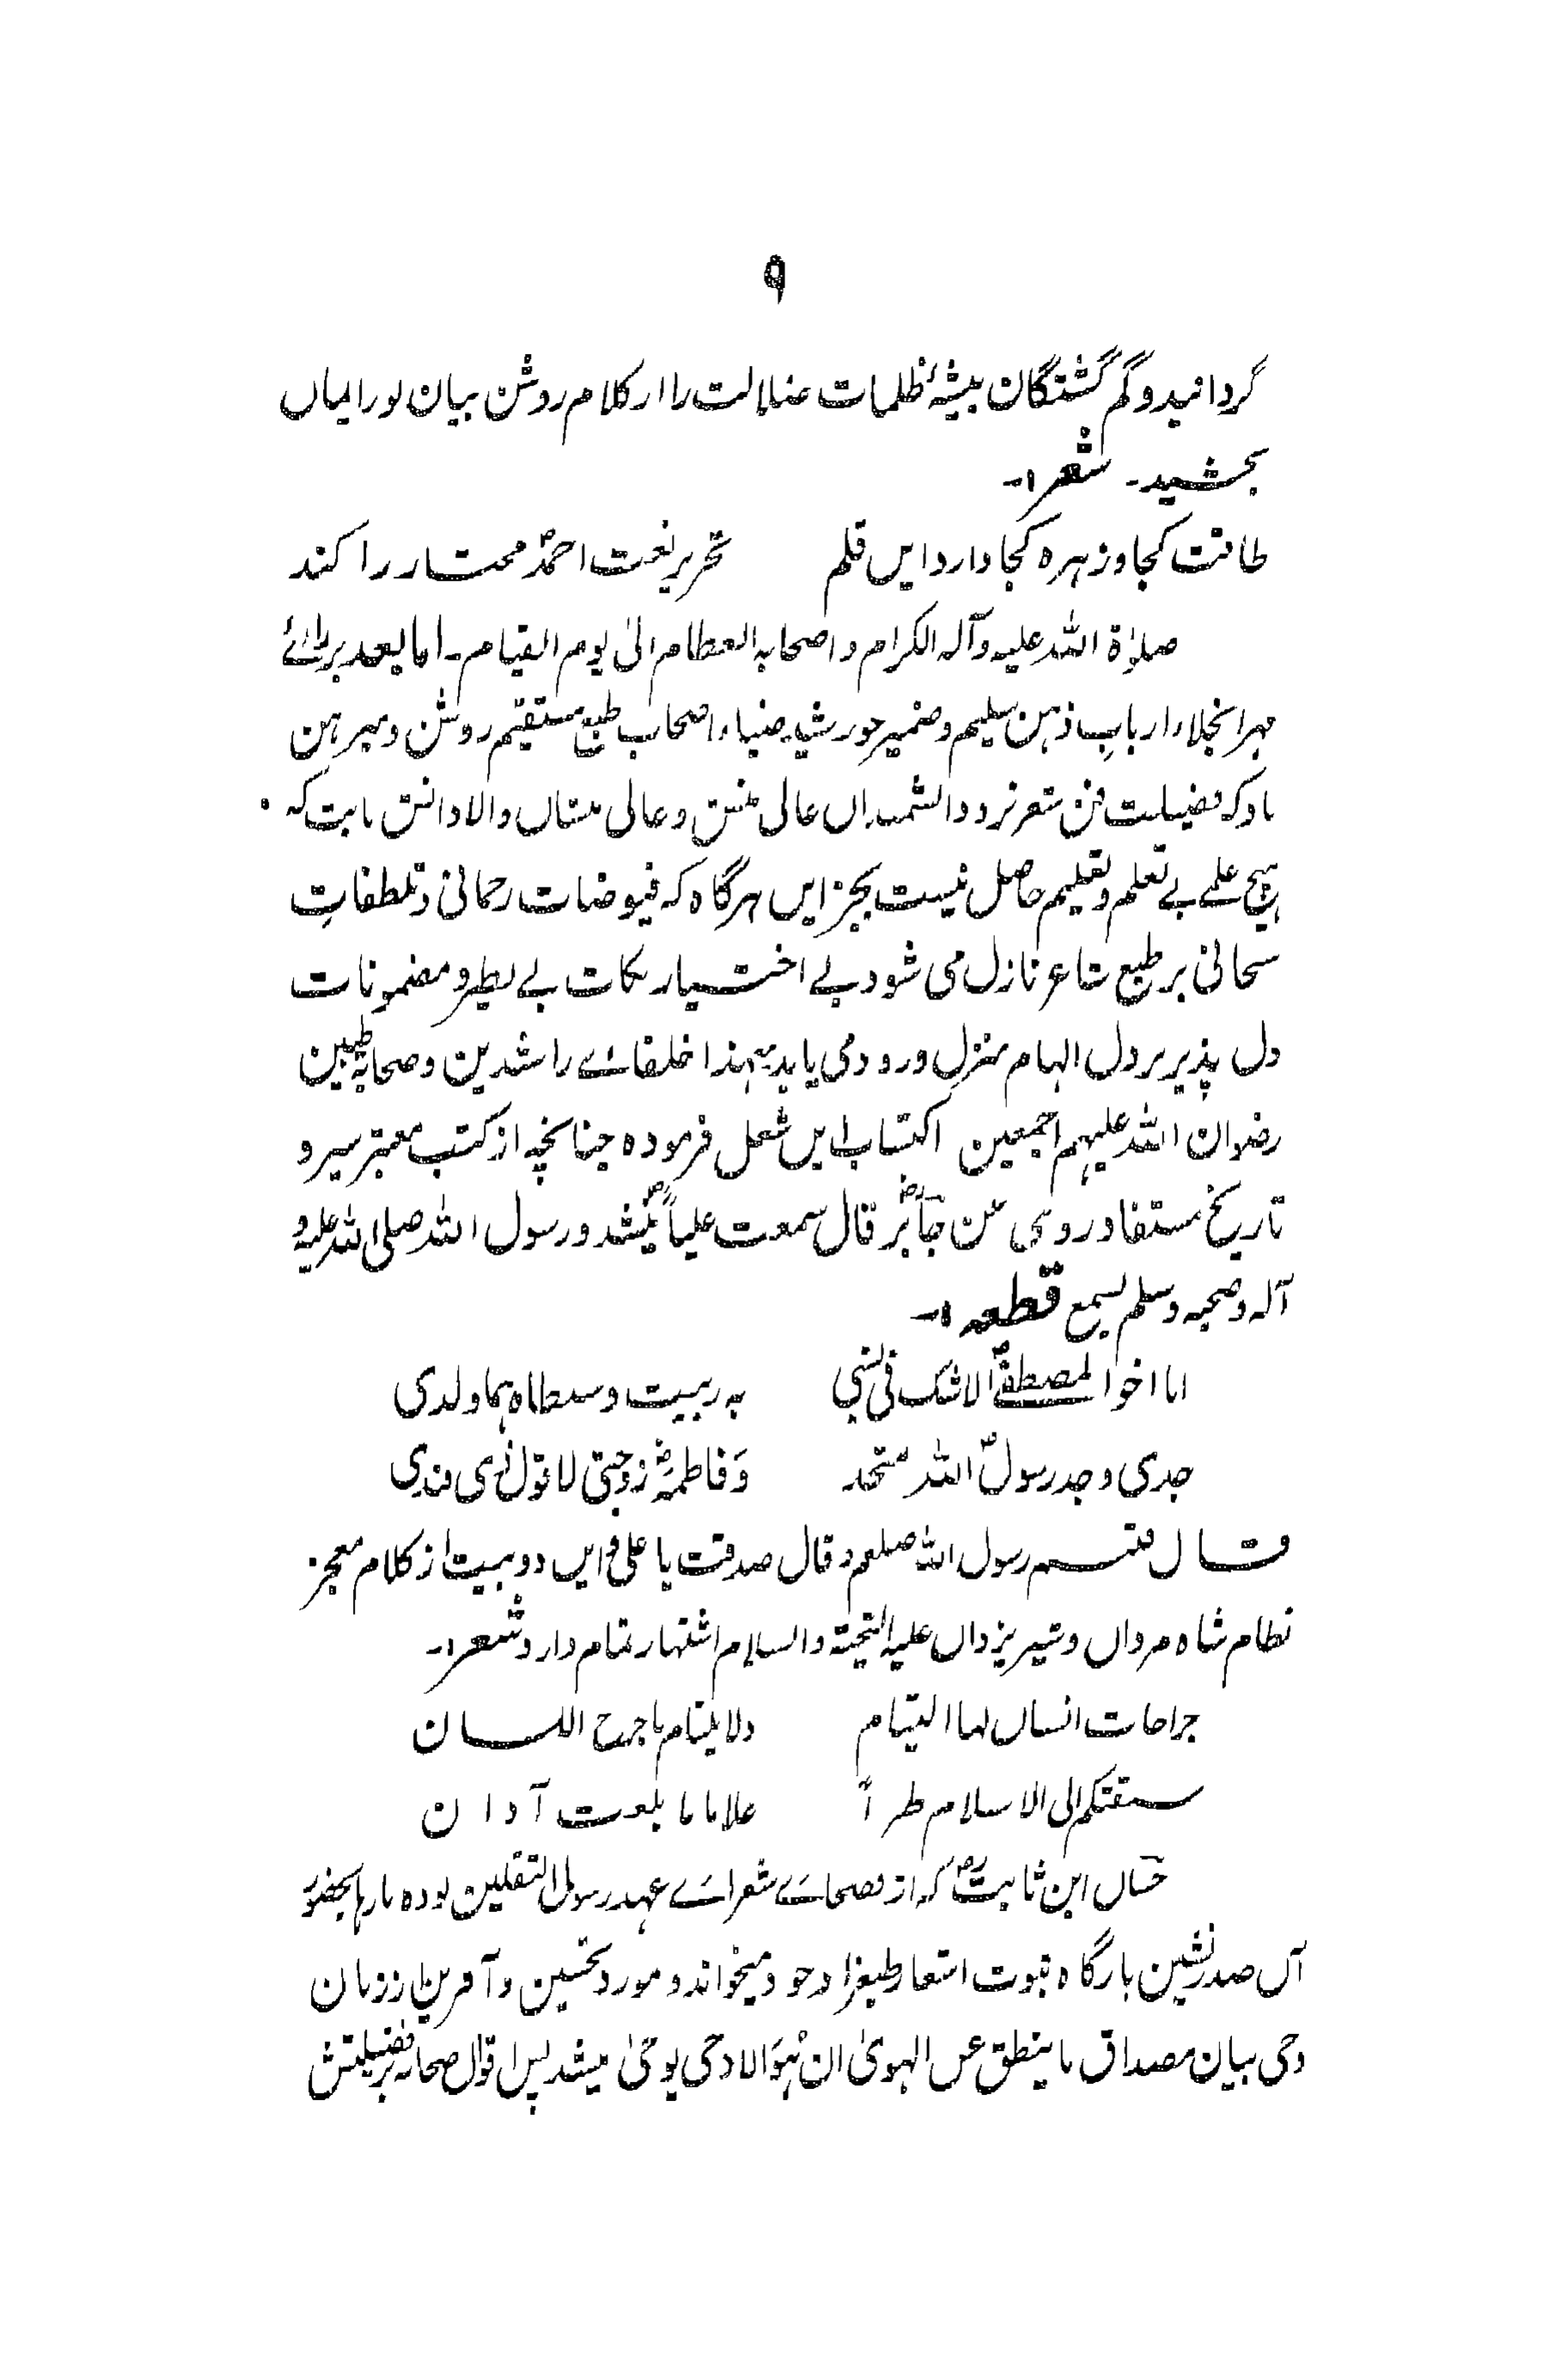 ۹
گردانید و گم گشتگان بیشۂ ظلمات ضلالت را از کلام روشن بیان نور ایماں
بخشید۔ شعر :۔
طاقت کجا و زہرہ کجا دارد ایں قلم تحریر نعت احمدؐ مختار را کند
صلوٰۃ اللہ علیہ و آلہ الکرام و اصحابہ العظام الیٰ یوم القیام۔ اما بعد بر رائے
مہر انجلاء ارباب ذہن سلیم و ضمیر خورشید ضیاء اصحاب طبع مستقیم روشن و مبرہن
باد کہ فضیلت فن شعر نزد دانشمنداں عالی منش و عالی منشاں والا دانش ثابت کہ
ہیچ علمے بے تعلم و تعلیم حاصل نیست بجز ایں ہرگاہ کہ فیوضات رحمانی و تلطفاتِ
سبحانی بر طبع شاعر نازل می شود بے اختیار نکات بے نظیر و مضمونات
دل پذیر بر دل الہام منزل ورود می یابد لہٰذا خلفائے راشدین و صحابہ طیبین
رضوان اللہ علیہم اجمعین اکتساب ایں شغل فرمودہ چنانچہ از کتب معتبر سیر و
تاریخ مستفاد روی عن جابرؓ قال سمعت علیاًؓ ینشد و رسول اللہ صلی اللہ علیہ و
آلہ و صحبہ وسلم یسمع قطعہ :۔
انا اخو المصطفےٰؐ لا شک فی نسبی بہ ربیت و سبطاہ ہما ولدی
جدی و جد رسولؐ اللہ متحد وَ فاطمہؓ زوجتی لا قول ذی فندی
قال فتبسم رسول اللہ صلعم و قال صدقت یا علی و ایں دو بیت از کلام معجز
نظام شاہ مرداں و شیر یزداں علیہ التحیۃ والسلام اشتہار تمام دارد شعر :۔
جراحات انساں لہا التیام ولا یلتام ما جرح اللسان
سبقتکم الی الاسلام طراً غلاما ما بلغت آوان
حسّاں ابن ثابتؓ کہ از فصحائے شعرائے عہد رسول الثقلین بودہ بارہا بحضور
آں صدر نشین بارگاہ نبوت اشعار طبعزاد خود میخواند و مورد تحسین و آفرین از زبان
وحی بیان مصداق ما ینطق عن الہویٰ ان ہُوَ الا وحی یوحیٰ میشد پس اقوال صحابہ بر فضیلتش